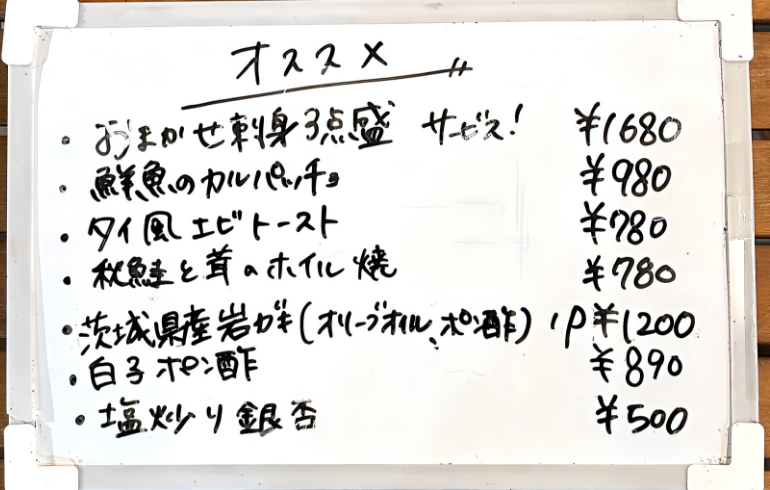 オススメ
・おまかせ刺身3点盛 サービス! ¥1680
・鮮魚のカルパッチョ ¥980
・タイ風エビトースト ¥780
・秋鮭と茸のホイル焼 ¥780
・茨城県産岩ガキ(オリーブオイル、ポン酢) 1P ¥1200
・白子ポン酢 ¥890
・塩炒り銀杏 ¥500